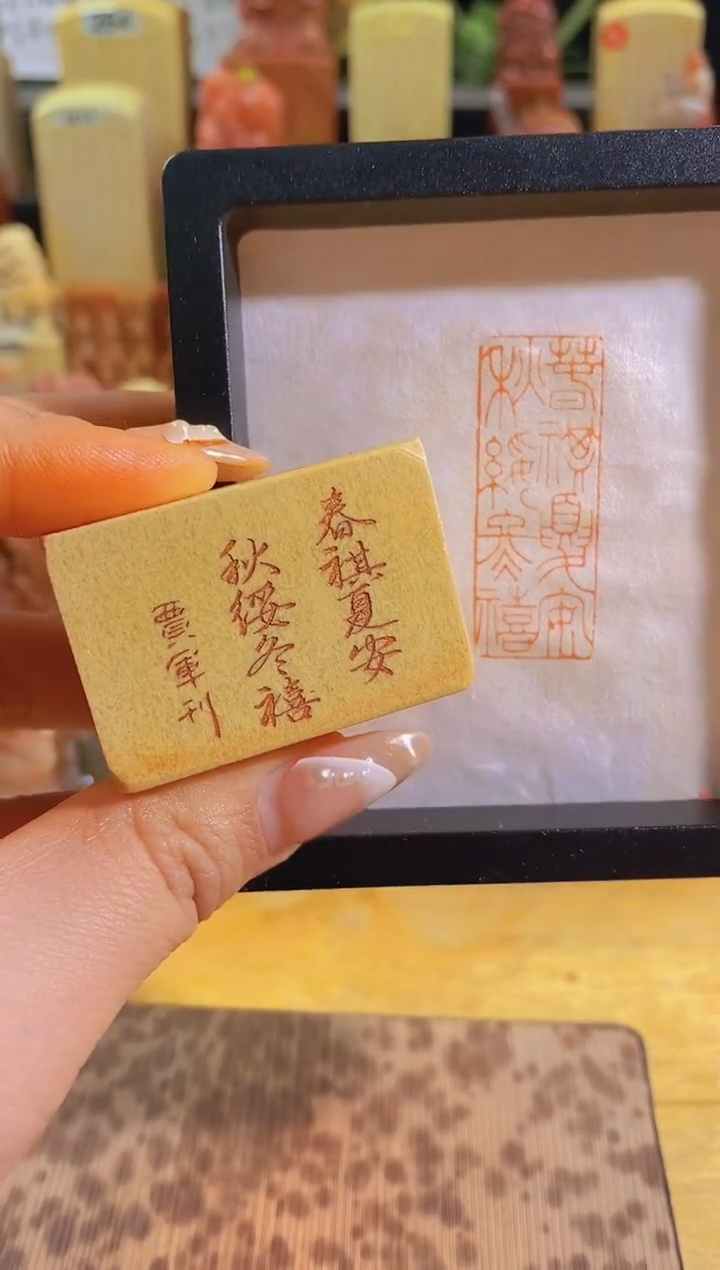 春祺夏安
秋綏冬禧
賈軍刊
春祺夏安
秋綏冬禧